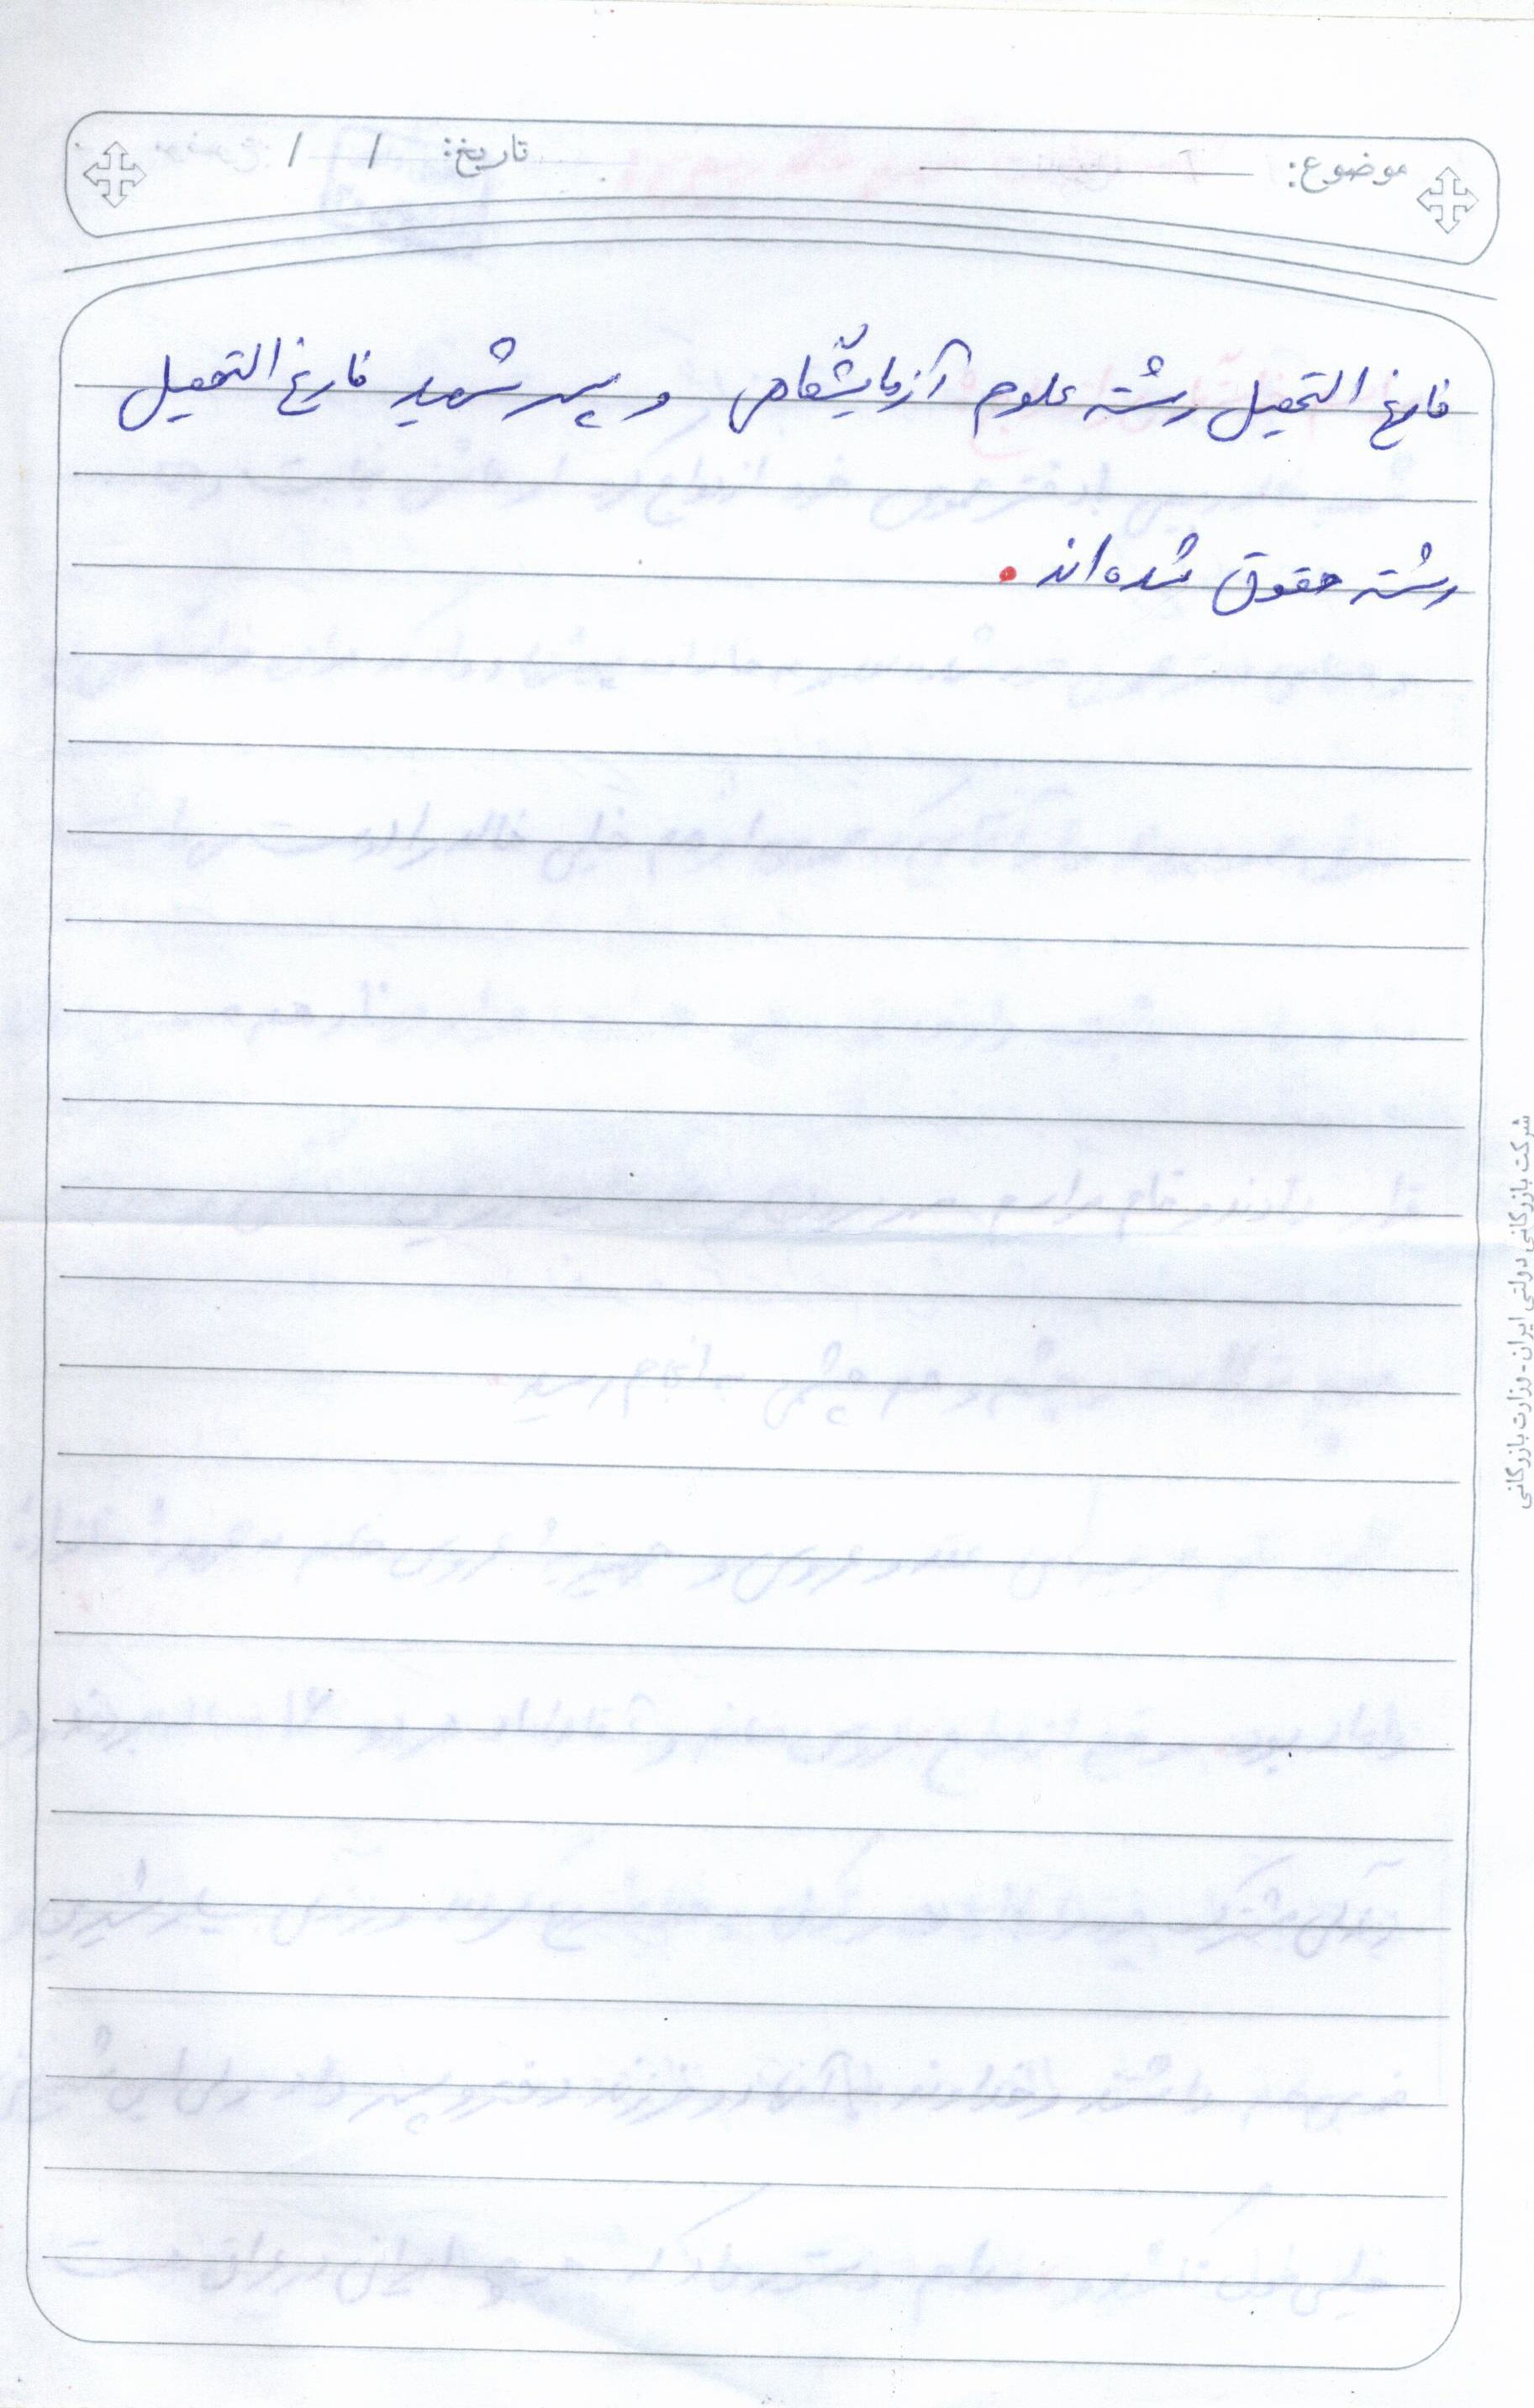 موضوع: تاریخ: / /
فارغ التحصیل رشته علوم آزمایشگاهی و پسر شهید فارغ التحصیل
رشته حقوق شده‌اند.
شرکت بازرگانی دولتی ایران - وزارت بازرگانی